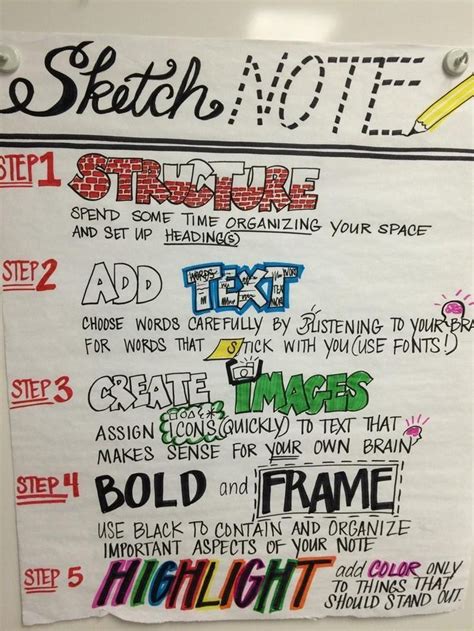 Sketch NOTE
STEP1 STRUCTURE
SPEND SOME TIME ORGANIZING YOUR SPACE
AND SET UP HEADING(S)
STEP2 ADD TEXT
CHOOSE WORDS CAREFULLY BY LISTENING TO YOUR BRA
FOR WORDS THAT STICK WITH YOU (USE FONTS!)
STEP 3 CREATE IMAGES
ASSIGN ICONS (QUICKLY) TO TEXT THAT
MAKES SENSE FOR YOUR OWN BRAIN
STEP 4 BOLD and FRAME
USE BLACK TO CONTAIN AND ORGANIZE
IMPORTANT ASPECTS OF YOUR NOTE
STEP 5 HIGHLIGHT add COLOR ONLY
TO THINGS THAT
SHOULD STAND OUT.